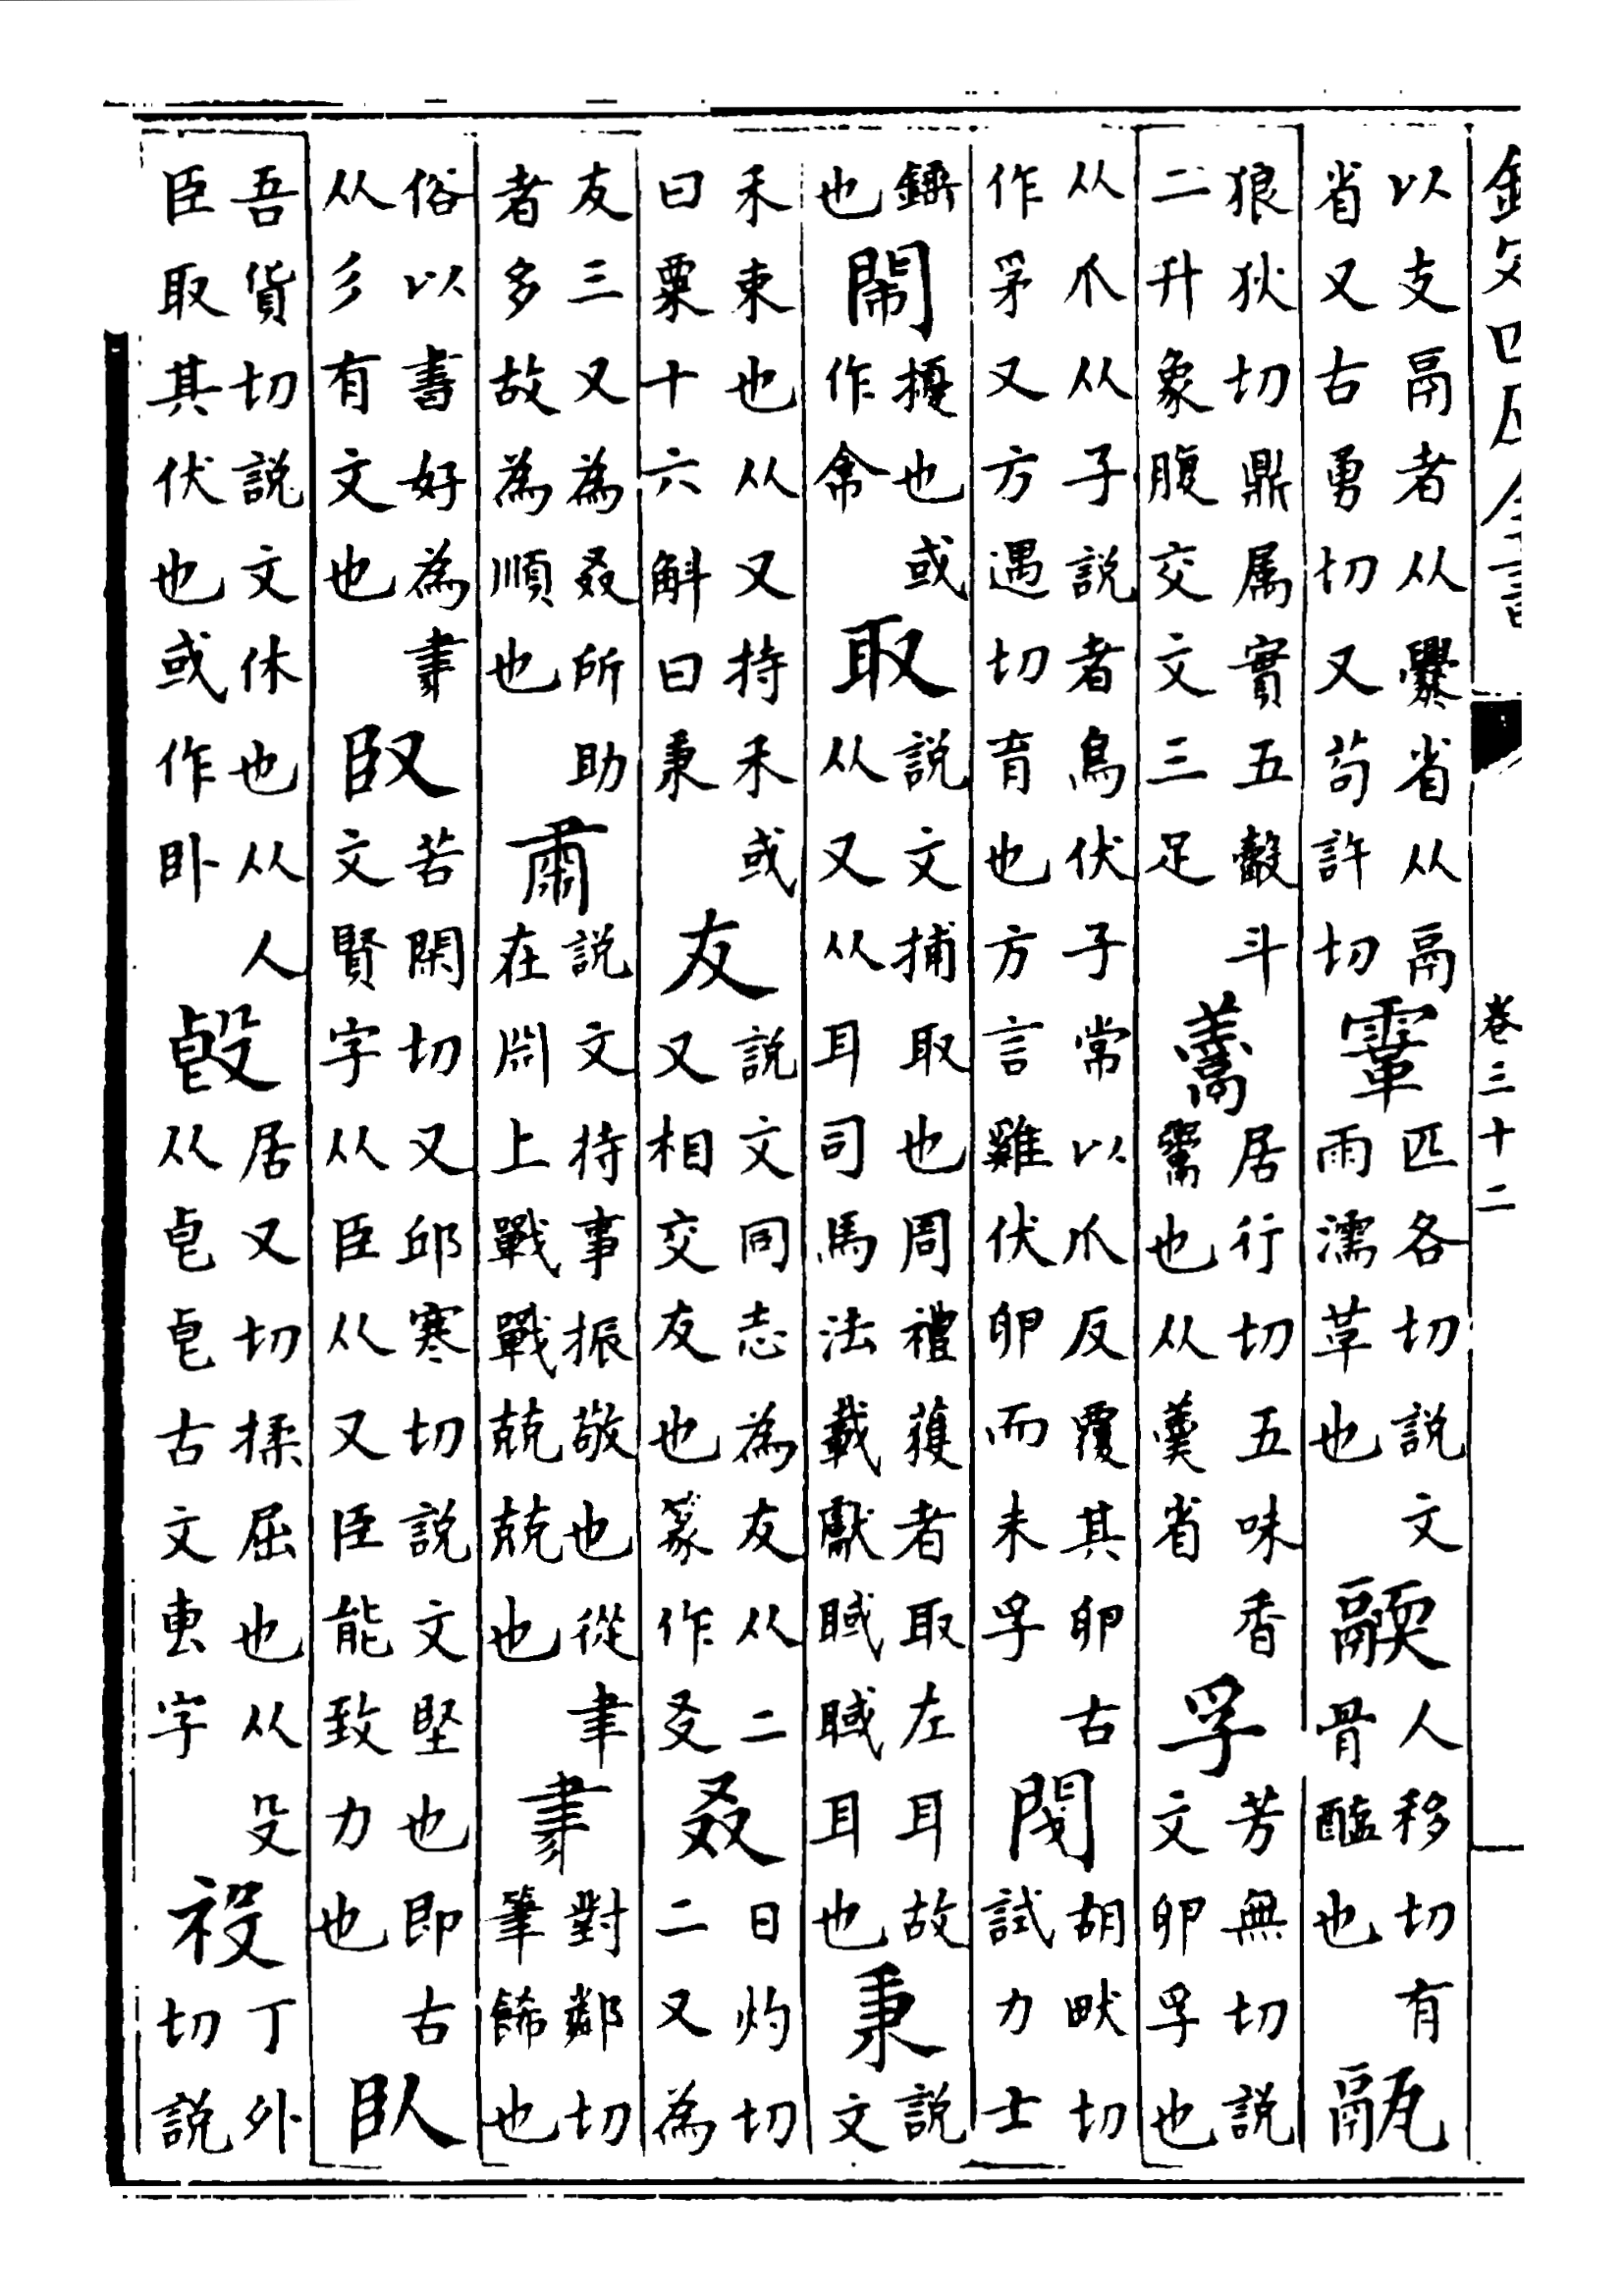 欽定四庫全書
卷三十二
以支鬲者从爨省从鬲省又古勇切又苟許切䨣匹各切說文雨濡革也人移切有骨醢也
狼狄切鼎属實五觳斗二升象腹交文三足居行切五味香鬻也从羹省孚芳無切説文卵孚也
从爪从子説者鳥伏子常以爪反覆其卵古作又方遇切育也方言雞伏卵而未孚胡畎切試力士
也鬧擾也或作取説文捕取也周禮獲者取左耳故从又从耳司馬法載獻聝聝耳也秉説文
禾束也从又持禾或曰粟十六斛曰秉友説文同志為友从二又相交友也篆作叒日灼切二又為
友三又為叒所助者多故為順也肅説文持事振敬也從聿在上戰戰兢兢也𦘔對鄰切筆餙也
俗以書好為𦘔从彡有文也臤苦閑切又邱寒切説文堅也即古文賢字从臣从又臣能致力也臥
吾貨切説文休也从人臣取其伏也或作卧𣪘居又切揉屈也从殳从皀皀古文叀字祋丁外切説